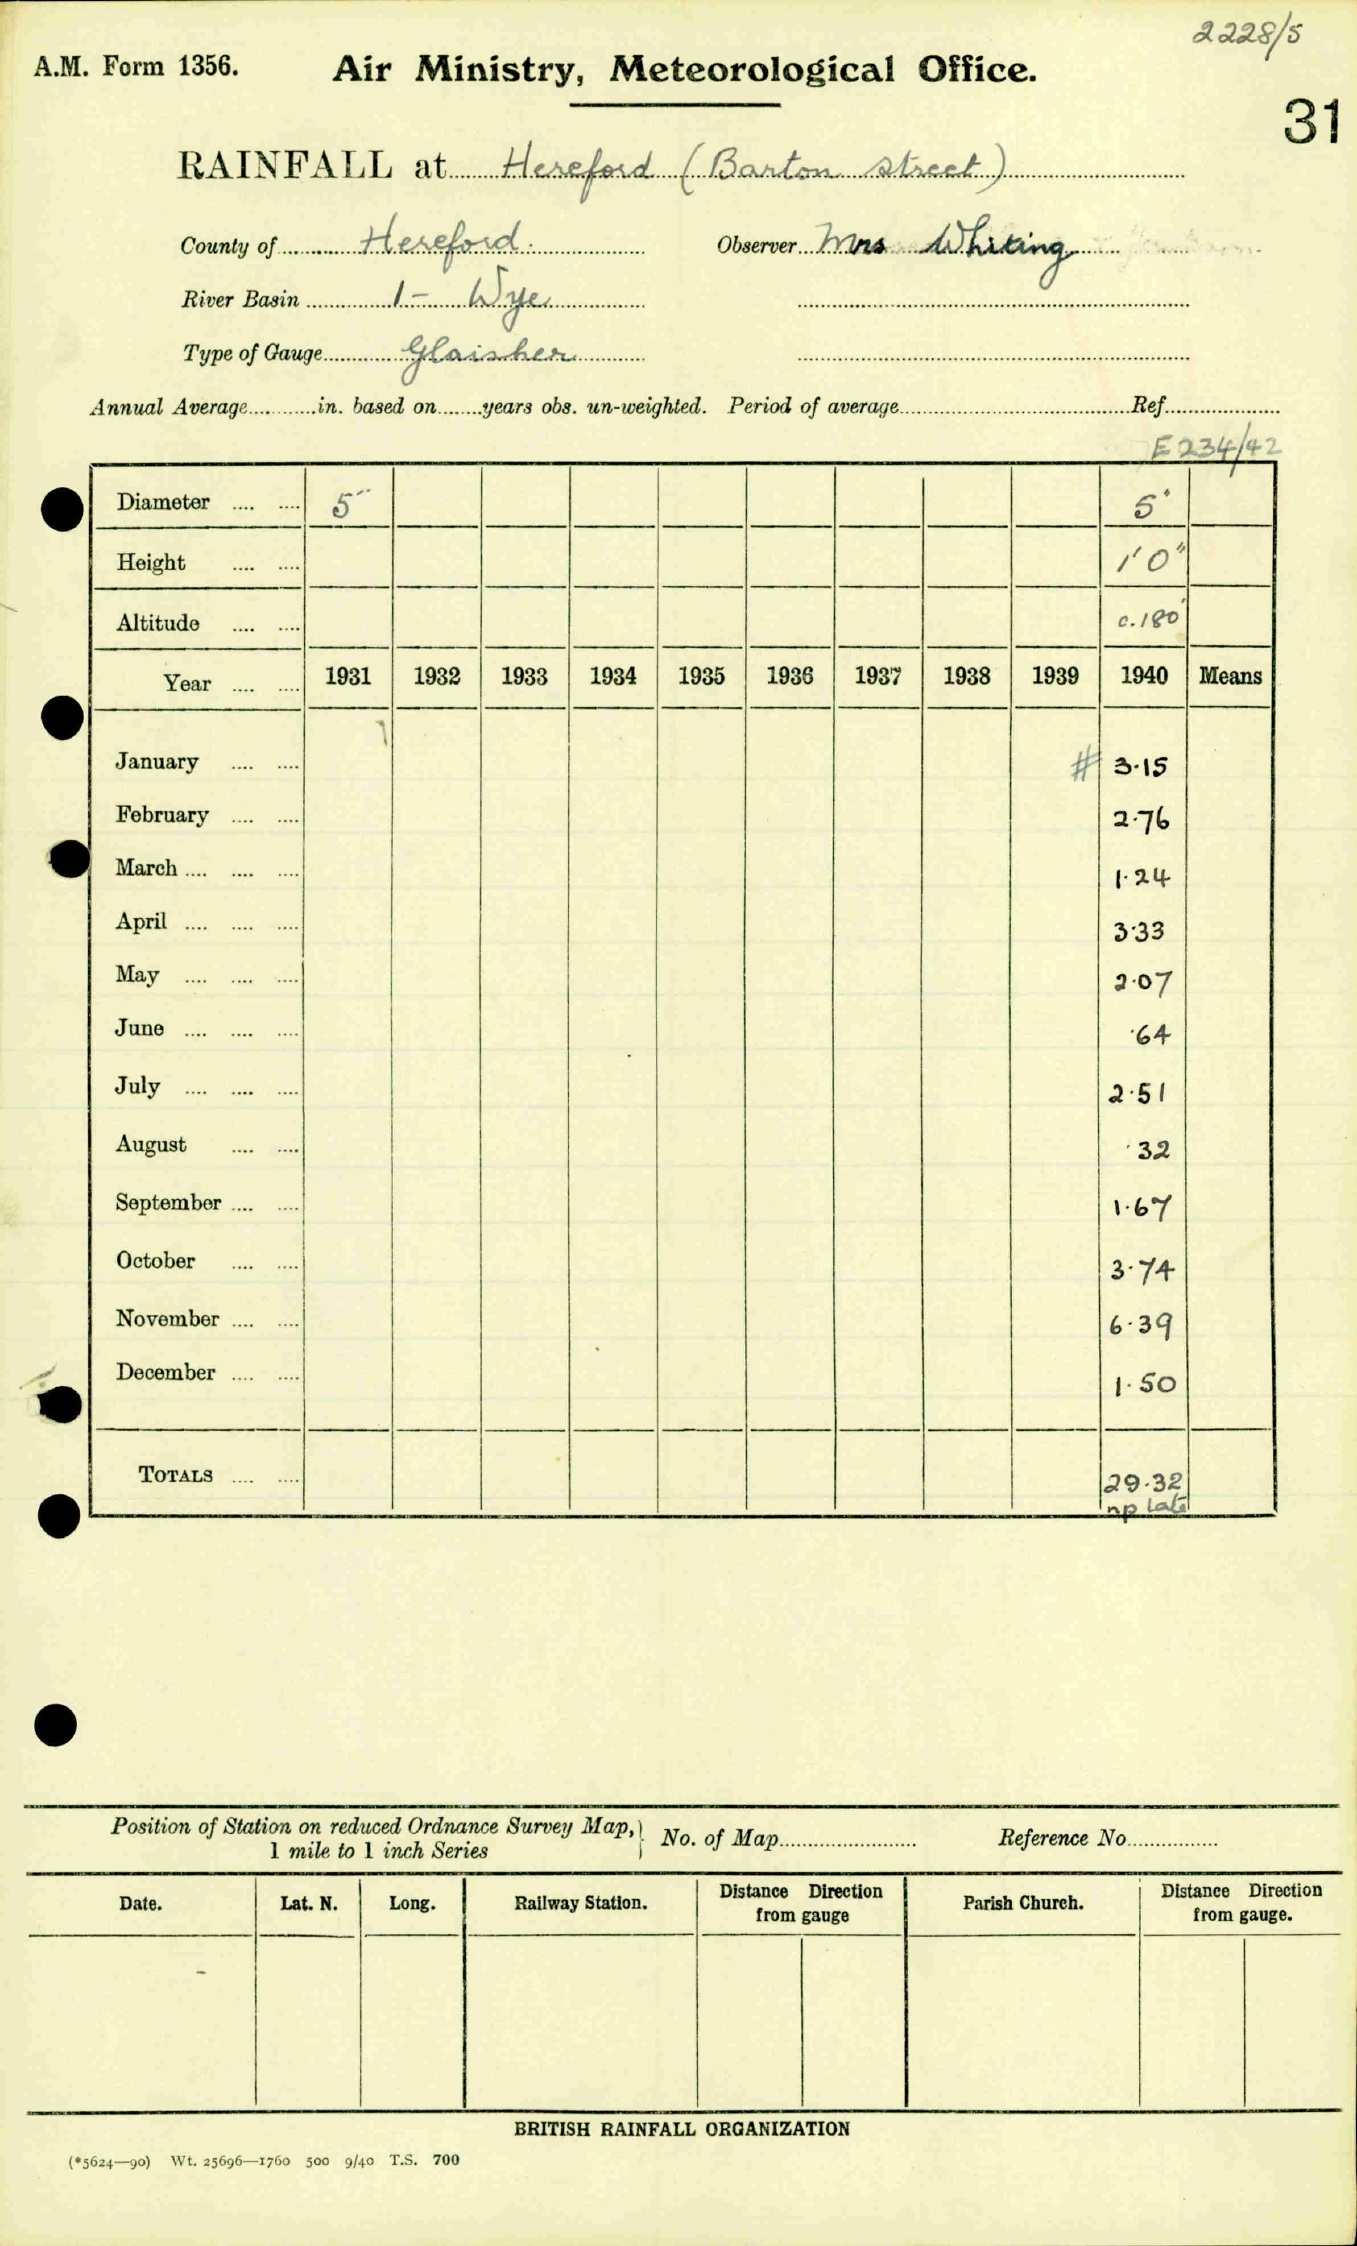 2228/5
A.M. Form 1356. Air Ministry, Meteorological Office.
31
RAINFALL at Hereford (Barton Street)
County of Hereford. Observer Mrs Whiting
River Basin 1- Wye
Type of Gauge Glaisher
Annual Average in. based on years obs. un-weighted. Period of average Ref.
E 234/42
Diameter 5" 5"
Height 1'0"
Altitude c.180'
Year 1931 1932 1933 1934 1935 1936 1937 1938 1939 1940 Means
January # 3.15
February 2.76
March 1.24
April 3.33
May 2.07
June .64
July 2.51
August .32
September 1.67
October 3.74
November 6.39
December 1.50
TOTALS 29.32
np late
Position of Station on reduced Ordnance Survey Map, No. of Map Reference No.
1 mile to 1 inch Series
Date. Lat. N. Long. Railway Station. Distance Direction from gauge Parish Church. Distance Direction from gauge.
BRITISH RAINFALL ORGANIZATION
(*5624—90) Wt. 25696—1760 500 9/40 T.S. 700